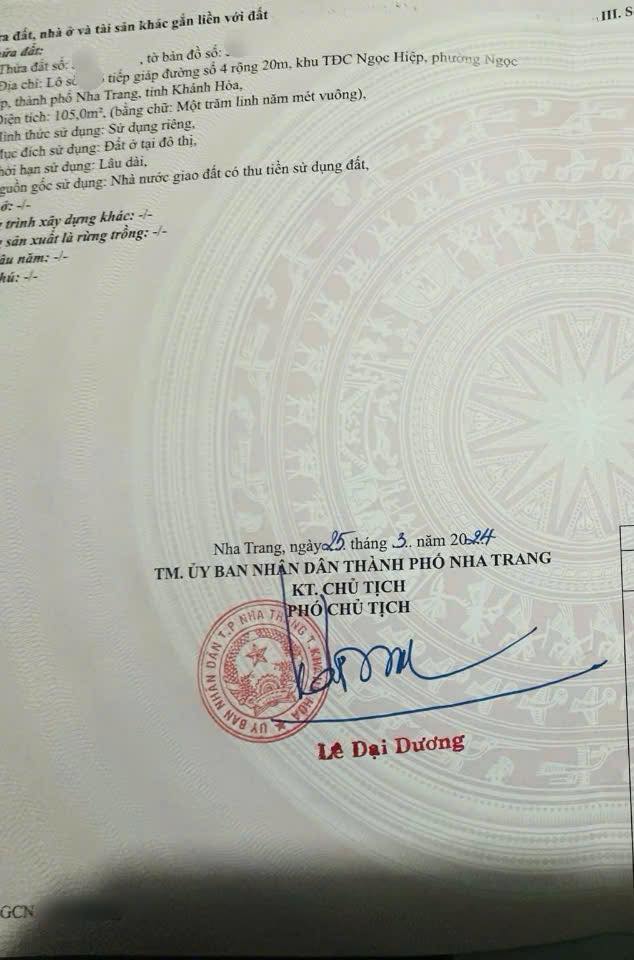 ửa đất, nhà ở và tài sản khác gắn liền với đất
III. S
ửa đất:
Thửa đất số: , tờ bản đồ số:
Địa chỉ: Lô số tiếp giáp đường số 4 rộng 20m, khu TĐC Ngọc Hiệp, phường Ngọc
ệp, thành phố Nha Trang, tỉnh Khánh Hòa,
Diện tích: 105,0m², (bằng chữ: Một trăm linh năm mét vuông),
Hình thức sử dụng: Sử dụng riêng,
Mục đích sử dụng: Đất ở tại đô thị,
hời hạn sử dụng: Lâu dài,
guồn gốc sử dụng: Nhà nước giao đất có thu tiền sử dụng đất,
ở: -/-
g trình xây dựng khác: -/-
g sản xuất là rừng trồng: -/-
âu năm: -/-
hú: -/-
Nha Trang, ngày 25 tháng 3 năm 2024
TM. ỦY BAN NHÂN DÂN THÀNH PHỐ NHA TRANG
KT. CHỦ TỊCH
PHÓ CHỦ TỊCH
ỦY BAN NHÂN DÂN T.P NHA TRANG T. KHÁNH HÒA
Lê Đại Dương
GCN